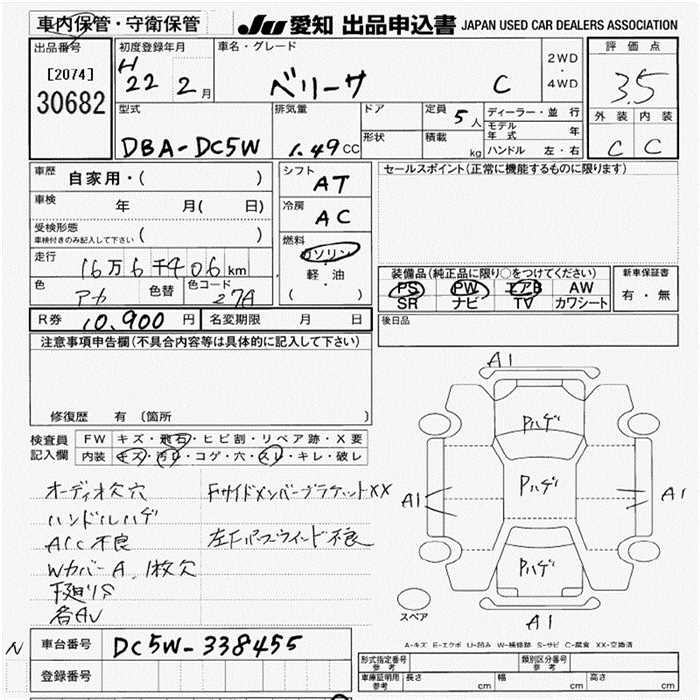 車内保管・守衛保管
JU 愛知 出品申込書 JAPAN USED CAR DEALERS ASSOCIATION
出品番号
[2074]
30682
初度登録年月
H
22 2月
車名・グレード
ベリーサ C
2WD
・
4WD
評価点
3.5
外装 内装
C C
型式
DBA-DC5W
排気量
1.49CC
ドア
形状
定員
5人
積載
kg
ディーラー・並行
モデル年式 年
ハンドル 左・右
車歴
自家用・( )
車検
年 月( 日)
受検形態
車検付きのみ記入して下さい ( )
走行
16万6千406km
色
アカ
色替
色コード
27A
シフト
AT
冷房
AC
燃料
ガソリン
・
軽・油
( )
セールスポイント(正常に機能するものに限ります)
装備品(純正品に限り○をつけてください)
PS PW エアB AW
SR ナビ TV カワシート
新車保証書
有・無
R券 10,900円
名変期限 月 日
後日品
注意事項申告欄(不具合内容等は具体的に記入して下さい)
修復歴 有 (箇所 )
検査員
記入欄
FW キズ・飛石・ヒビ割・リペア跡・X要
内装 キズ・汚レ・コゲ・穴・スレ・キレ・破レ
オーディオ欠穴
ハンドルハゲ
A/C不良
WカバーA、1枚欠
下廻りS
各AU
FサイドメンバーブラケットXX
左Fパーワウインド不良
A1
Pハゲ
Pハゲ
Pハゲ
A1
A1
A1
スペア
A-キズ E-エクボ U-凹み W-補修跡 S-サビ C-腐食 XX-交換済
N
車台番号
DC5W-338455
登録番号
形式指定番号
参考
類別区分番号
参考
車庫証明用
参考
長さ cm
幅 cm
高さ cm